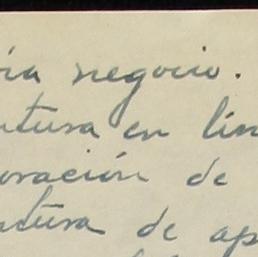 ria negocio.
ntura en lin
oración de
ntura de ap